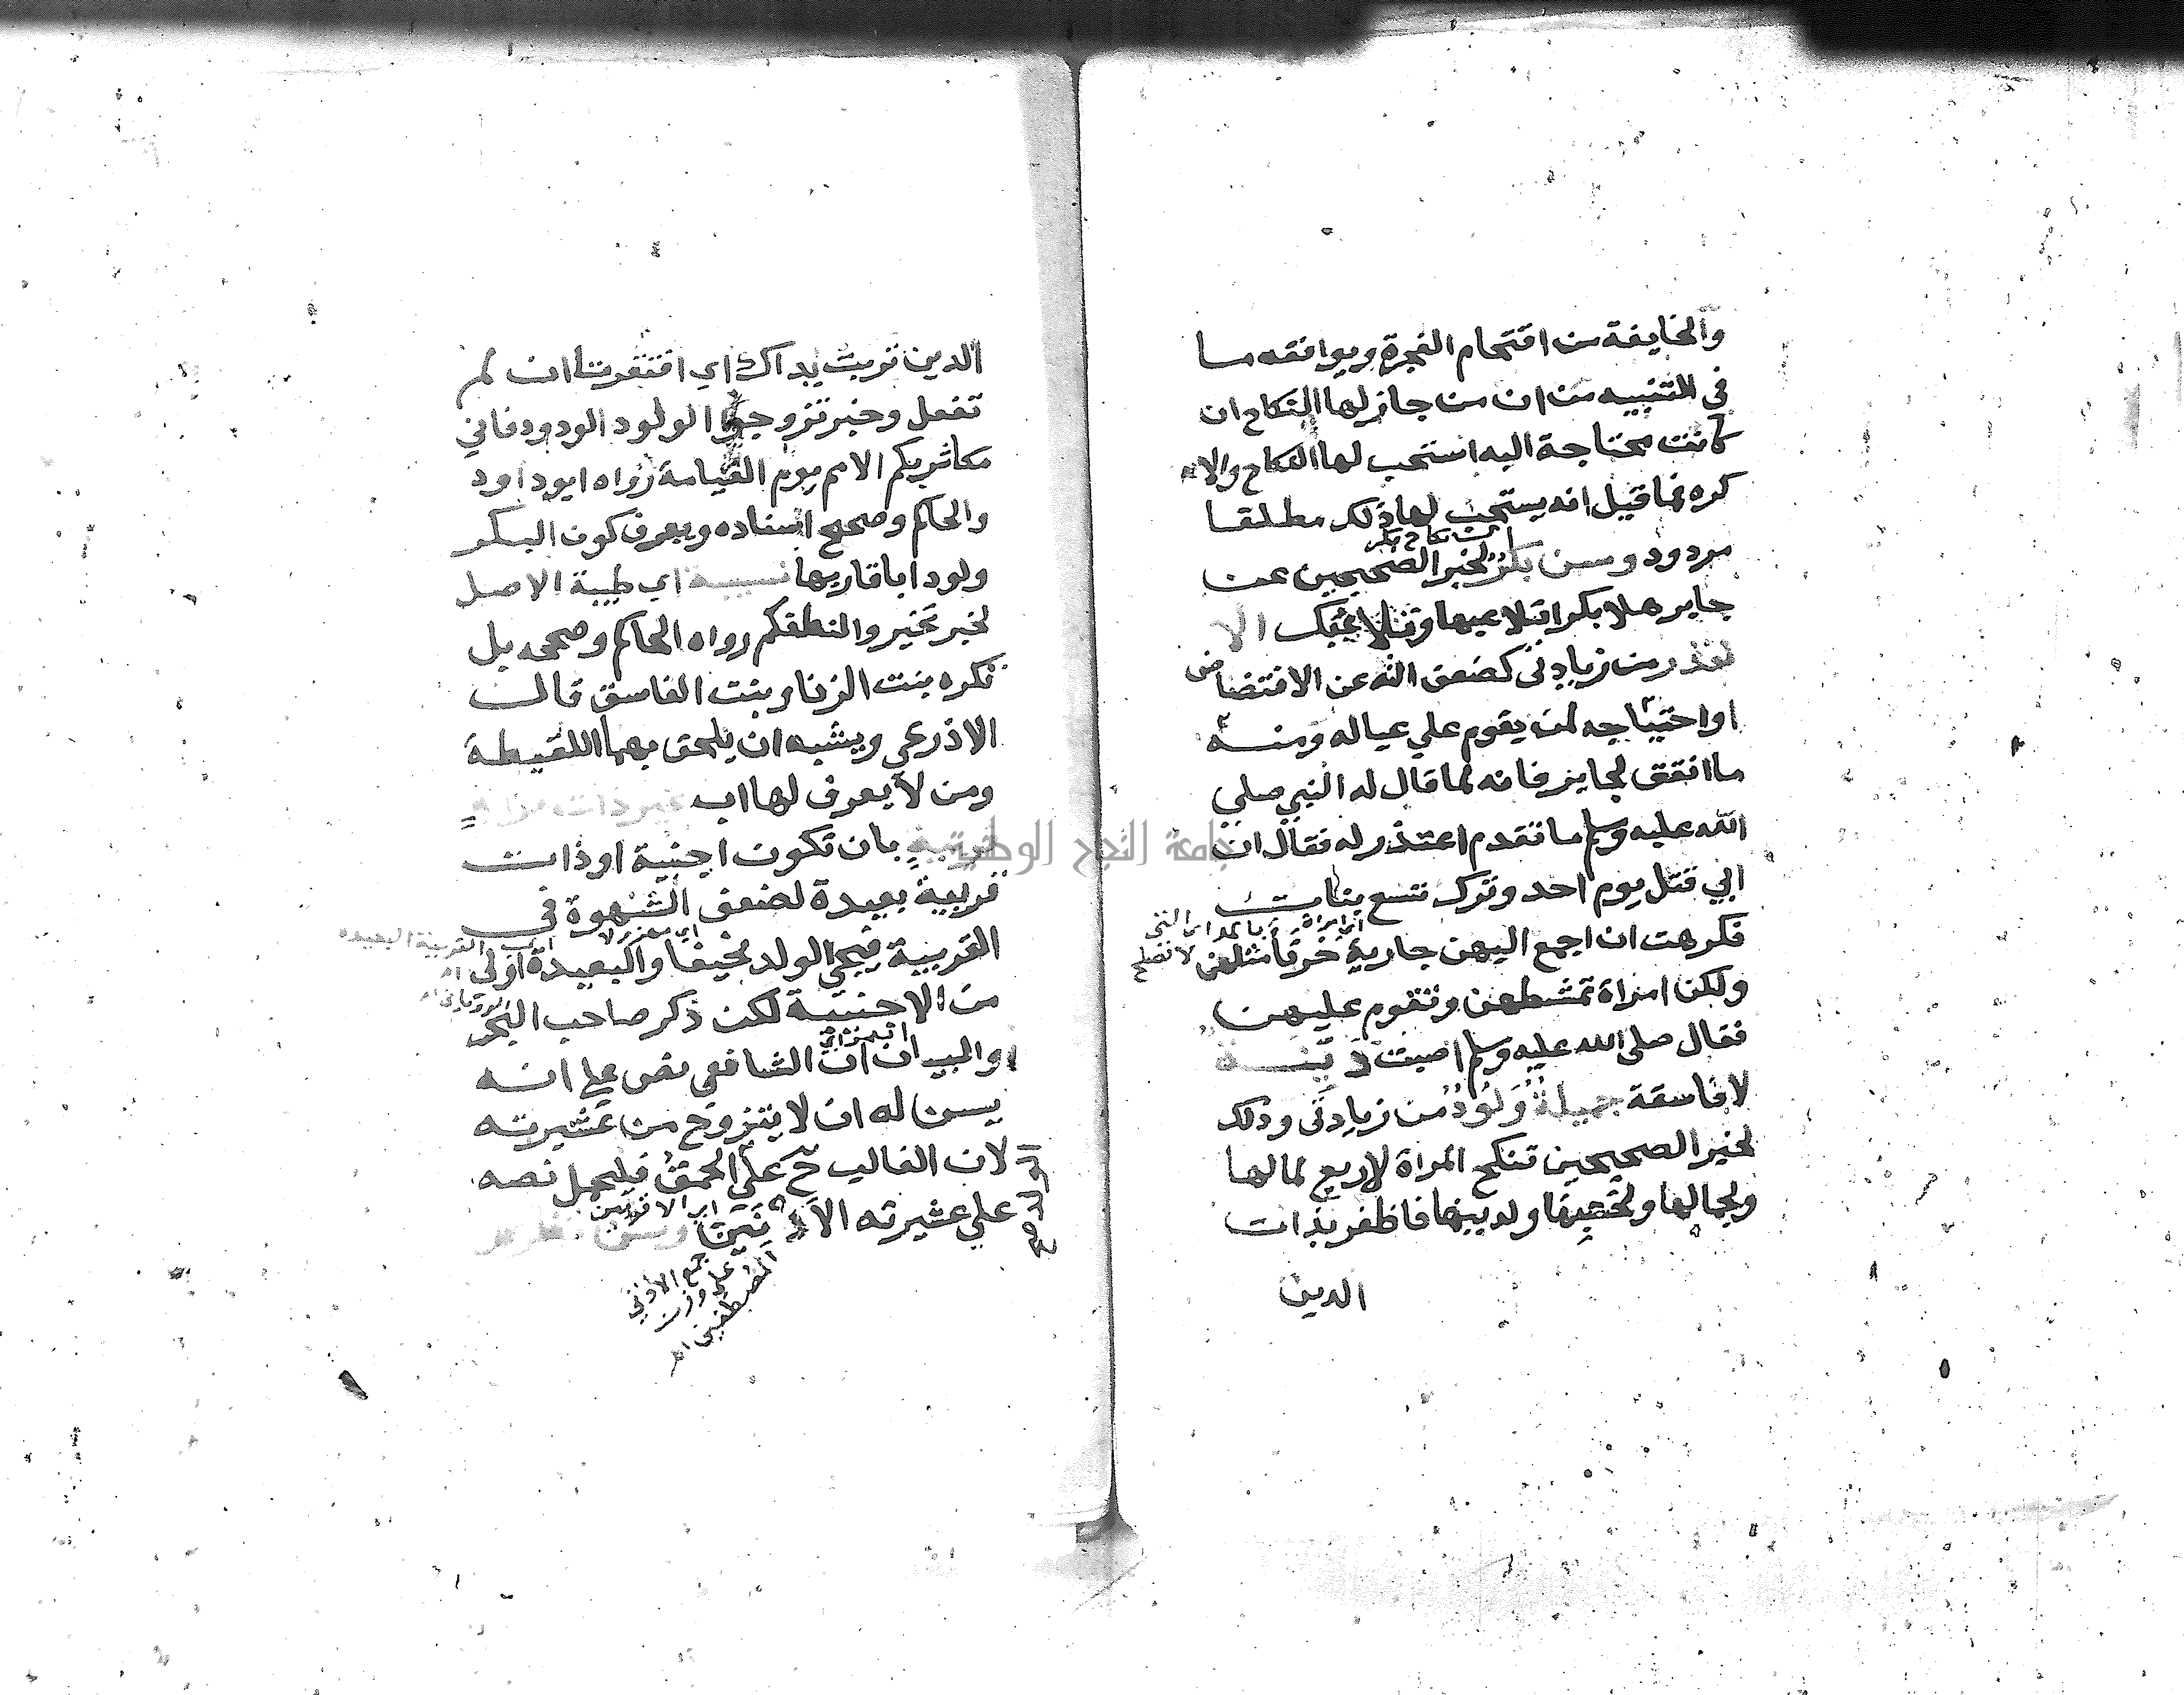 والخايفة من اقتحام الفجرة ويوافقه ما
في التنبيه من ان من جاز لها النكاح ان
كانت محتاجة اليه استحب لها النكاح والا
كره فما قيل انه يستحب لها ذلك مطلقا
اي نكاح بكر
مردود وسن بكر لخبر الصحيحين عن
جابر هلا بكرا تلاعبها وتلاعبك الا
لعذر من زيادتي كضعف الته عن الافتضاض
او احتياجه لمن يقوم علي عياله ومنه
ما اتفق لجابر فانه لما قال له النبي صلي
الله عليه وسلم ما تقدم اعتذر له فقال ان
ابي قتل يوم احد وترك تسع بنات
فكرهت ان اجمع اليهن جارية خرقا مثلهن
لا تصلح
ولكن امراة تمشطهن وتقوم عليهن
فقال صلى الله عليه وسلم اصبت دينة
لا فاسقة جميلة ولود من زيادتي وذلك
لخبر الصحيحين تنكح المراة لاربع لمالها
ولجمالها ولحسبها ولدينها فاظفر بذات
الدين
الدين تربت يداك اي افتقرتا ان لم
تفعل وخبر تزوجوا الولود الودود فاني
مكاثر بكم الامم يوم القيامة رواه ابو داود
والحاكم وصحح اسناده ويعرف كون البكر
ولودا باقاربها نسيبة اي طيبة الاصل
لخبر تخيروا لنطفكم رواه الحاكم وصححه بل
تكره بنت الزنا وبنت الفاسق قال
الاذرعي ويشبه ان يلحق بهما اللقيطة
ومن لا يعرف لها اب
بان تكون اجنبية او ذات
قرابة بعيدة لضعف الشهوة في
القريبة البعيده
القريبة فيجي الولد نحيفا والبعيدة اولى
من الاجنبية لكن ذكر صاحب البحر
والبيان ان الشافعي نص علي انه
يسن له ان لا يتزوج من عشيرته
لان الغالب ح علي الحمق فليحمل نصه
اي الاقربين
علي عشيرته الادنين وسن
جمع الادني
علي وزن
المصطفين اهـ
جامعة النجاح الوطنية